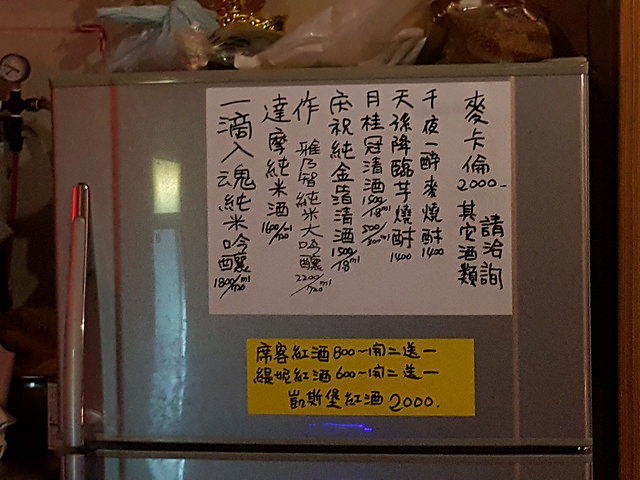 麥卡倫 2000-
其它酒類
請洽詢
千夜一醉麥燒酎 1400
天孫降臨芋燒酎 1400
月桂冠清酒 1500/1.8ml 500/300ml
庆祝純金箔清酒 1500/1.8
作 雅乃智純米大吟釀 2200/720ml
達摩純米酒 1600/720ml
一滴入魂純米吟釀 1800/720ml
席客紅酒 800~1開二送一
緹妮紅酒 600~1開二送一
凱斯堡紅酒 2000.